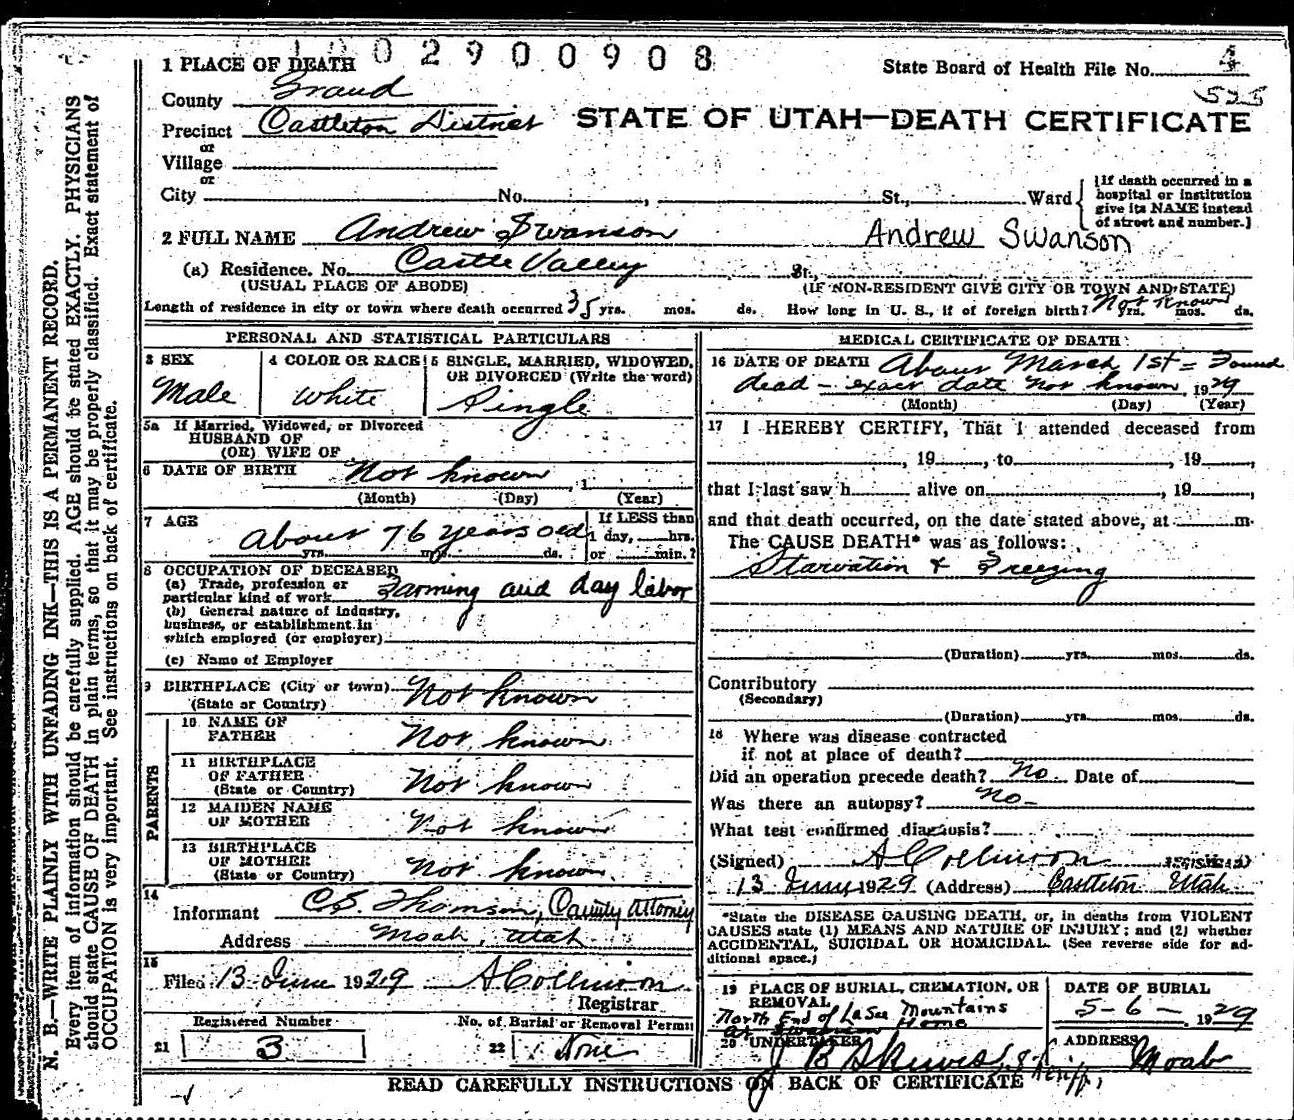 1 0 0 2 9 0 0 9 0 8
1 PLACE OF DEATH
State Board of Health File No. 4
525
County Grand
STATE OF UTAH—DEATH CERTIFICATE
Precinct Castleton District
or
Village
or
City No. , St., Ward
{If death occurred in a
hospital or institution
give its NAME instead
of street and number.}
2 FULL NAME Andrew Swanson Andrew Swanson
(a) Residence. No. Castle Valley St.,
(USUAL PLACE OF ABODE) (IF NON-RESIDENT GIVE CITY OR TOWN AND STATE)
Length of residence in city or town where death occurred 35 yrs. mos. ds. How long in U. S., if of foreign birth? Not Known yrs. mos. ds.
PERSONAL AND STATISTICAL PARTICULARS
3 SEX
Male
4 COLOR OR RACE
White
5 SINGLE, MARRIED, WIDOWED,
OR DIVORCED (Write the word)
Single
5a If Married, Widowed, or Divorced
HUSBAND OF
(OR) WIFE OF
6 DATE OF BIRTH Not known , 1
(Month) (Day) (Year)
7 AGE About 76 years old
yrs. mos. ds.
If LESS than
1 day, hrs.
or min.?
8 OCCUPATION OF DECEASED
(a) Trade, profession or
particular kind of work Farming and day labor
(b) General nature of Industry,
business, or establishment in
which employed (or employer)
(c) Name of Employer
9 BIRTHPLACE (City or town) Not known
(State or Country)
PARENTS
10 NAME OF
FATHER Not known
11 BIRTHPLACE
OF FATHER
(State or Country) Not known
12 MAIDEN NAME
OF MOTHER Not known
13 BIRTHPLACE
OF MOTHER
(State or Country) Not known.
14
Informant C.S. Thomson, County Attorney
Address Moab, Utah
15
Filed 13 June 1929 A Collinson
Registrar
Registered Number
21 3
No. of Burial or Removal Permit
22 None
MEDICAL CERTIFICATE OF DEATH
16 DATE OF DEATH About March 1st = Found
dead - exact date not known 1929
(Month) (Day) (Year)
17 I HEREBY CERTIFY, That I attended deceased from
, 19 , to , 19 ,
that I last saw h alive on , 19 ,
and that death occurred, on the date stated above, at m.
The CAUSE DEATH* was as follows:
Starvation & Freezing
(Duration) yrs. mos. ds.
Contributory
(Secondary)
(Duration) yrs. mos. ds.
18 Where was disease contracted
if not at place of death?
Did an operation precede death? No Date of
Was there an autopsy? No -
What test confirmed diagnosis?
(Signed) A Collinson
13 June 1929 (Address) Castleton Utah
*State the DISEASE CAUSING DEATH, or, in deaths from VIOLENT
CAUSES state (1) MEANS AND NATURE OF INJURY; and (2) whether
ACCIDENTAL, SUICIDAL OR HOMICIDAL. (See reverse side for ad-
ditional space.)
19 PLACE OF BURIAL, CREMATION, OR
REMOVAL
North End of La Sal Mountains
at Swanson Home
DATE OF BURIAL
5-6- 1929
20 UNDERTAKER
J B Skewes, Sheriff,
ADDRESS
Moab
READ CAREFULLY INSTRUCTIONS ON BACK OF CERTIFICATE
N. B.—WRITE PLAINLY WITH UNFADING INK—THIS IS A PERMANENT RECORD.
Every item of information should be carefully supplied. AGE should be stated EXACTLY. PHYSICIANS
should state CAUSE OF DEATH in plain terms, so that it may be properly classified. Exact statement of
OCCUPATION is very important. See instructions on back of certificate.